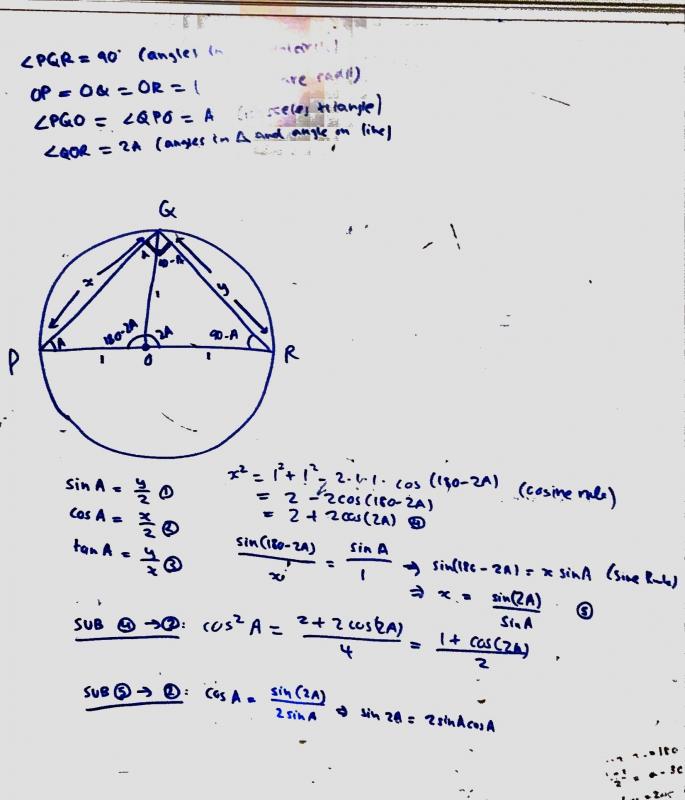 ∠PQR = 90° (angles in
OP = OQ = OR = 1 are radii)
∠PQO = ∠QPO = A triangle)
∠QOR = 2A (angles in Δ and angle on line)
Q
A 90-A
x y
1
A 180-2A 2A 90-A
P 1 O 1 R
sin A = y/2 ①
cos A = x/2 ②
tan A = y/x ③
x² = 1² + 1² - 2·1·1· cos (180-2A) (cosine rule)
= 2 - 2cos(180-2A)
= 2 + 2cos(2A) ④
sin(180-2A)/x = sin A/1 → sin(180-2A) = x sinA (Sine Rule)
⇒ x = sin(2A)/sin A ⑤
SUB ④ → ②: cos² A = 2 + 2cos(2A)/4 = 1 + cos(2A)/2
SUB ⑤ → ②: cos A = sin(2A)/2sinA ⇒ sin 2A = 2sinAcosA